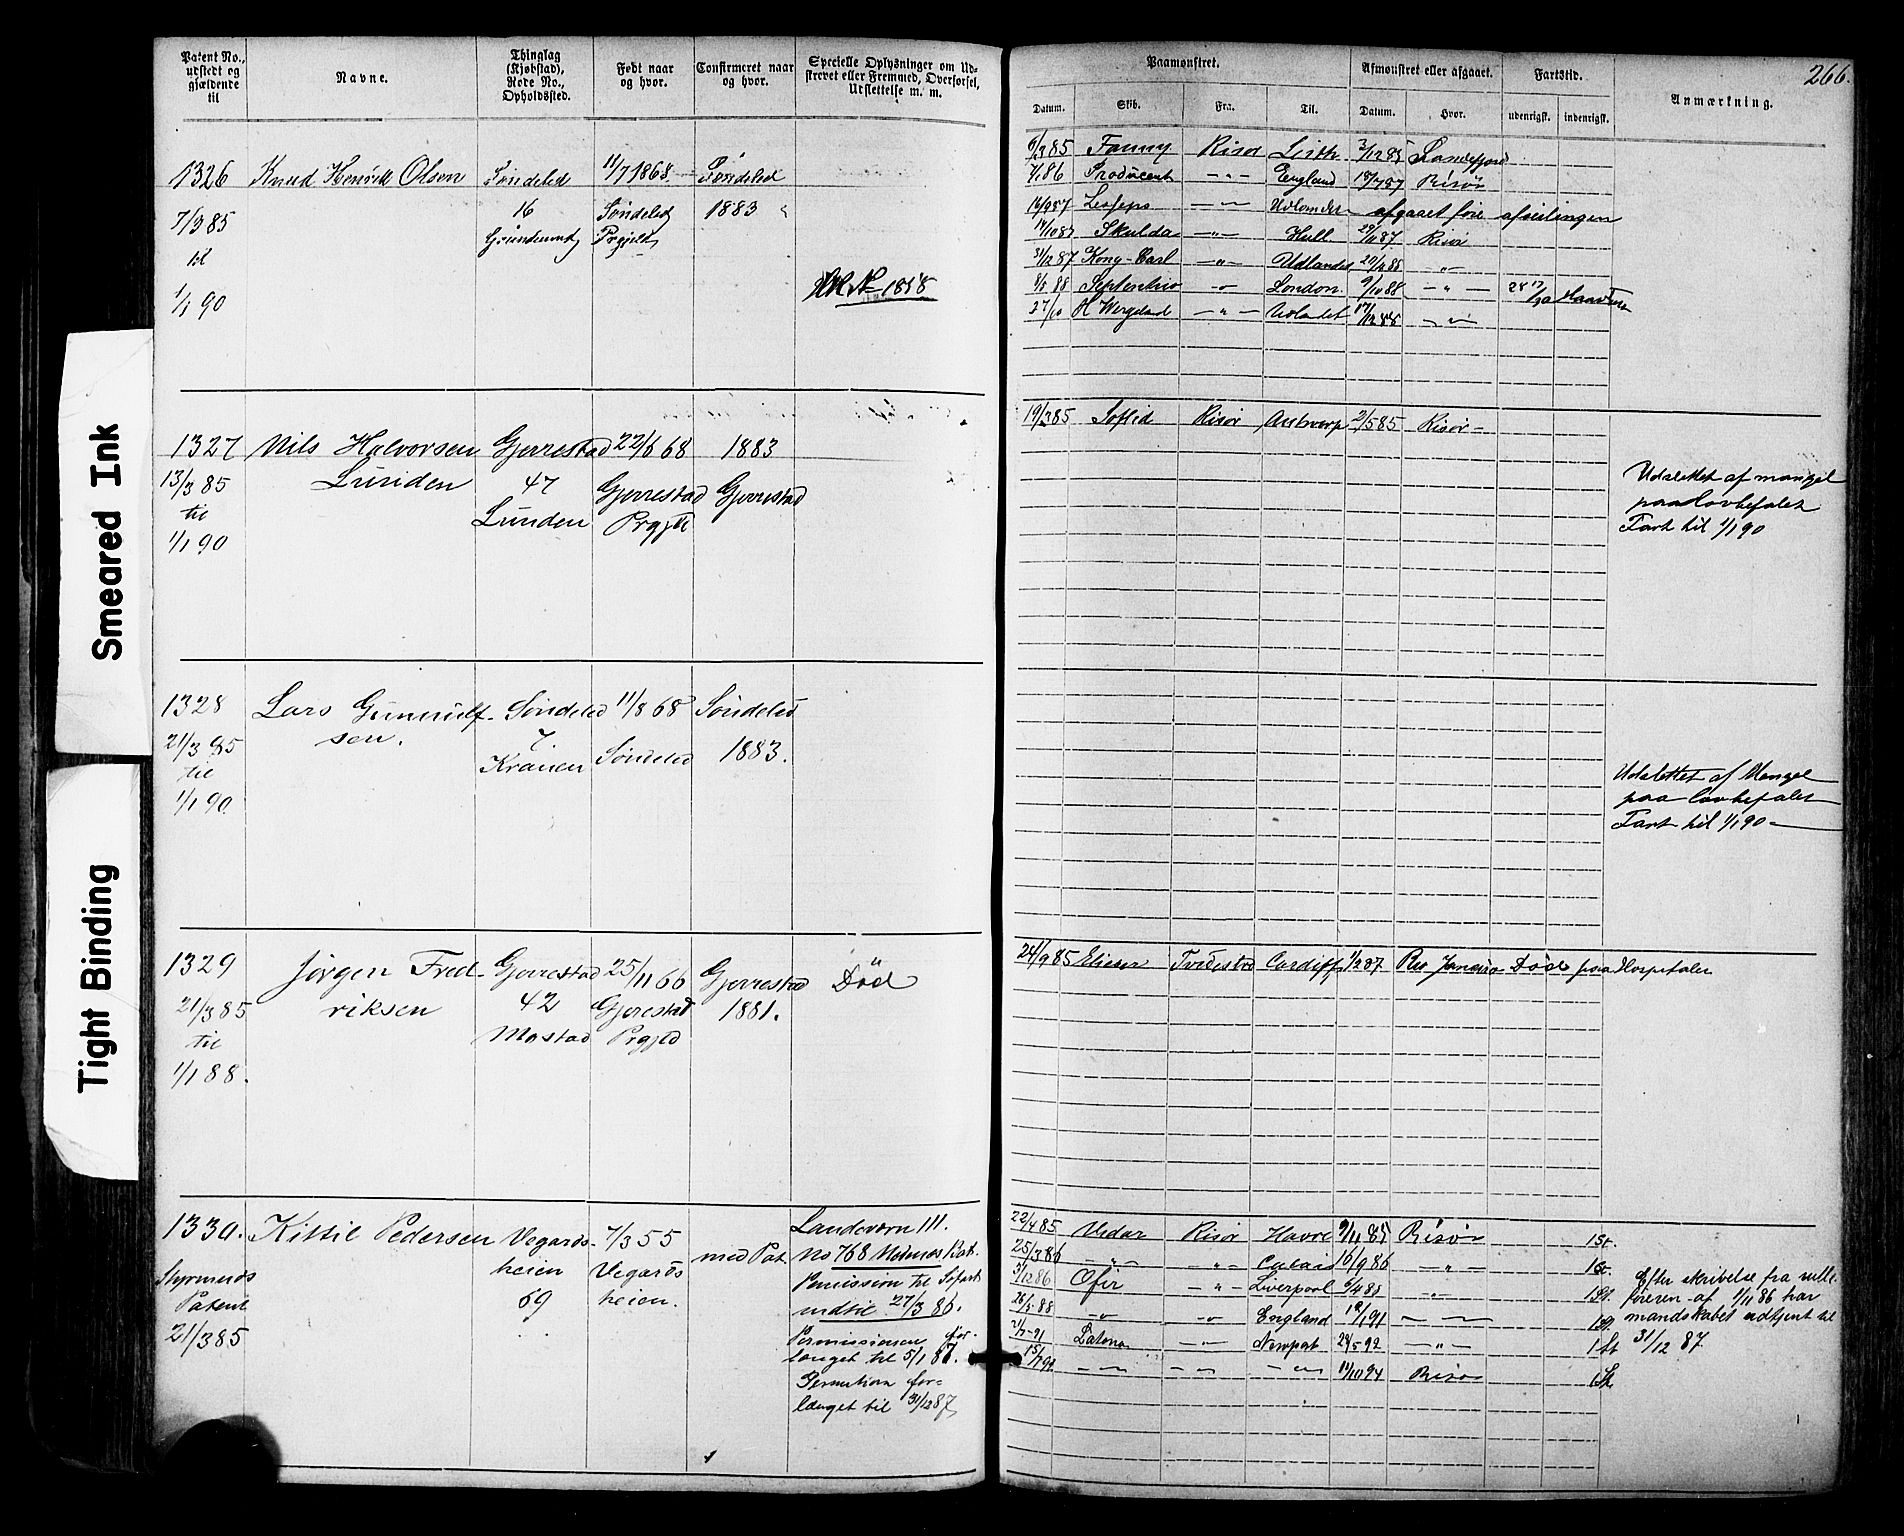 Patent No., udstedt og gjældende til
Navne.
Thinglag (Kjøbstad), Rode No., Opholdssted.
Født naar og hvor.
Confirmeret naar og hvor.
Specielle Oplysninger om Udskrevet eller Fremmed, Overførsel, Udslettelse m. m.
Paamønstret.
Afmønstret eller afgaaet.
Fartstid.
Anmærkning.
266.
Datum.
Skib.
Fra.
Til.
Datum.
Hvor.
udenrigsk.
indenrigsk.
Smeared Ink
Tight Binding
1326 Knud Henrik Olsen Søndeled 11/7 1868. Søndeled
7/3 85 16 Søndeled 1883
til Prgjeld
1/1 90
1858
6/3 85 Fanny Risør Leith 3/12 85
7/1 86 Producent —"— England 18/7 87 Risør
16/9 87 Lesseps —"— Udlandet afgaaet före afseilingen
17/10 87 Skulda —"— Hull 29/11 87 Risør
31/12 87 Kong Carl —"— Udlandet 20/4 88 —"—
8/5 88 Septentrio —"— London. 9/10 88 —"—
27/10 H Wergeland —"— Udlandet 17/12 88 —"—
1327 Nils Halvorsen Gjerrestad 22/6 68 1883
13/3 85 Lunden 47 Gjerrestad Gjerrestad
til Lunden Prgjld
1/1 90
19/3 85 Solid Risør Antverp 2/5 85 Risør
Udslettet af mangel
paa lovbefalet
Fart til 1/1 90
1328 Lars Gunnulf- Søndeled 11/8 68 Søndeled
21/3 85 sen. 7. Søndeled 1883.
til Kranen
1/1 90.
Udslettet af Mangel
paa lovbefalet
Fart til 1/1 90
1329 Jørgen Fred- Gjerrestad 25/11 66 Gjerrestad Död
21/3 85 riksen 42 Gjerestad 1881.
til Mostad Prgjld
1/1 88.
24/9 85 Eliezer Tvedestrd Cardiff 1/2 87 Rio Janeiro Död paa Hospitalet
1330. Kittil Pedersen Vegards- 7/3 55 med Pat. Landeværn 111.
Styrmands heien Vegards No 768
Patent 69 heien. Permission til
21/3 85 indtil 27/3 86.
Permissionen for-
længet til 5/1 87.
Permition for-
længet til 31/12 87
22/4 85. Vidar Risør Havre 9/11 85 Risør 1 St.
25/3 86 —"— —"— Calais 16/9 86 —"— 1 St.
3/12 86 Ofir —"— Liverpool 6/4 88 —"— 1 St.
26/5 88 —"— —"— England 18/1 91 —"— 1 St.
21/7 91 Latona —"— Newport 24/5 92 —"— 1 St
15/7 92 —"— —"— —"— 11/10 94 Risør 1 St.
Efter skrivelse fra rulle-
føreren af 1/11 86 har
mandskabet udtjent til
31/12 87.